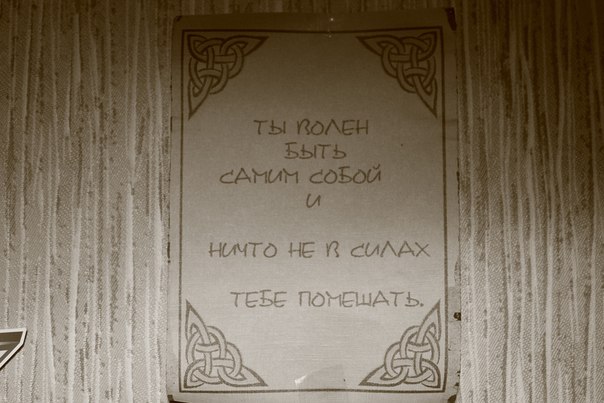 ТЫ ВОЛЕН
БЫТЬ
САМИМ СОБОЙ
И
НИЧТО НЕ В СИЛАХ
ТЕБЕ ПОМЕШАТЬ.